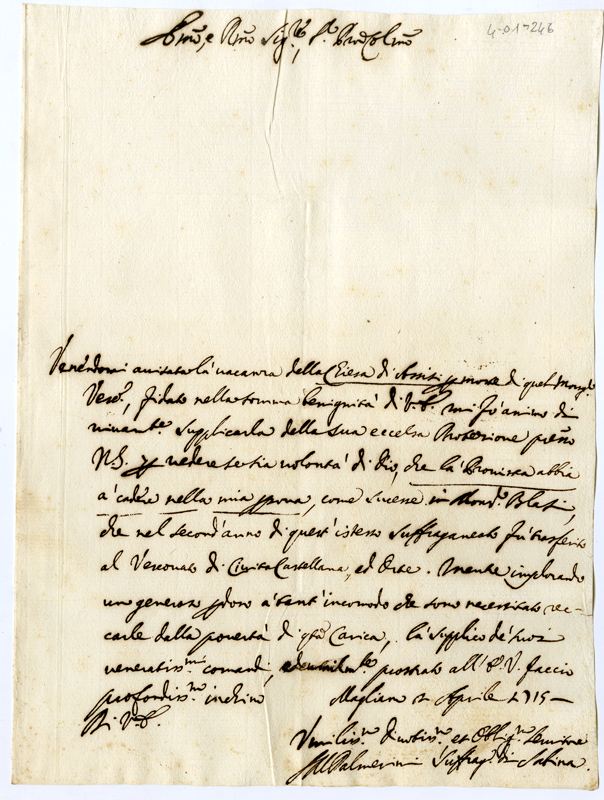 4-01-246
Em̃o, e Rm̃o Sig.re, P.re Pron Colmo
Venendomi avvisata la vacanza della Chiesa di Assisi p morte di quel Monsig.r
Vesc.o, fidato nella somma benignità di V.E. mi fò animo di
vivam.te supplicarla della sua eccelsa Protezione presso
N.S. p vedere se sia volontà di Dio, che la Provista abbia
a cadere nella mia psona, come successe in Mons.r Blasi,
che nel second'anno di quest'istesso Suffraganeato fù trasferito
al Vescovato di Civita Castellana, ed Orte. Mentre implorando
un generoso pdono à tant'incomodo che sono necessitato rec-
carle dalla povertà di q̃sta Carica, la supplico de' suoi
veneratiss.mi comandi, prostrato all' E.V. faccio
profondiss.mo inchino
Magliano Aprile 1715
Di V.E.
Umiliss.mo Divotiss.mo et Oblig.mo Servitore
Palmerini Suffrag.o di Sabina